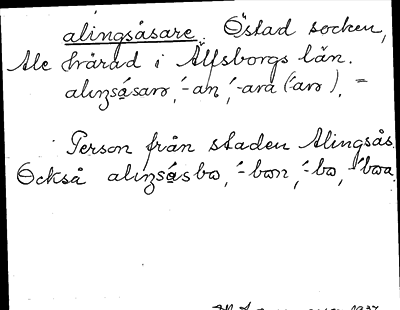 alingsåsare. Östad socken,
Ale härad i Älfsborgs län.
alıŋsásarə, ´-an, ´-ara (´-arə). =
Person från staden Alingsås.
Också alıŋsåsbə, ´-bən, ´-bə, ´-bəa